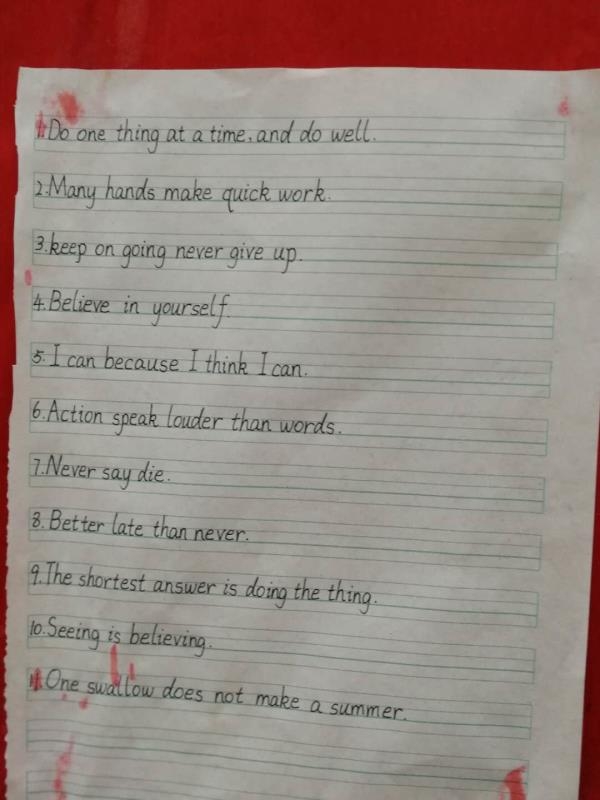 1.Do one thing at a time, and do well.
2.Many hands make quick work.
3.keep on going never give up.
4.Believe in yourself.
5.I can because I think I can.
6.Action speak louder than words.
7.Never say die.
8.Better late than never.
9.The shortest answer is doing the thing.
10.Seeing is believing.
11.One swallow does not make a summer.